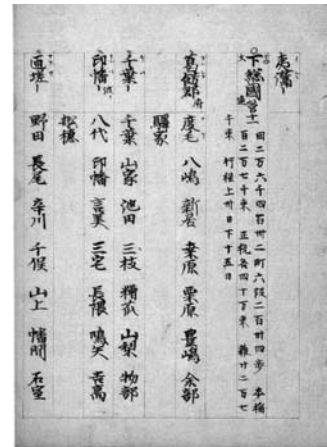 夷灊
下総國管十一 田二万六千四百卅二町六段二百卅四歩 本穎
百二万七千束 正税各四十万束 雜廿二万七
千束 行程上卅日下十五日
葛餝郡 府 度毛 八嶋 新居 桑原 栗原 豊嶋 余部
驛家
千葉 千葉 山家 池田 三枝 糟苽 山梨 物部
印幡 八代 印幡 言美 三宅 長隈 鳴矢 吉高
舩穂
匝瑳 野田 長尾 辛川 千俣 山上 幡間 石室